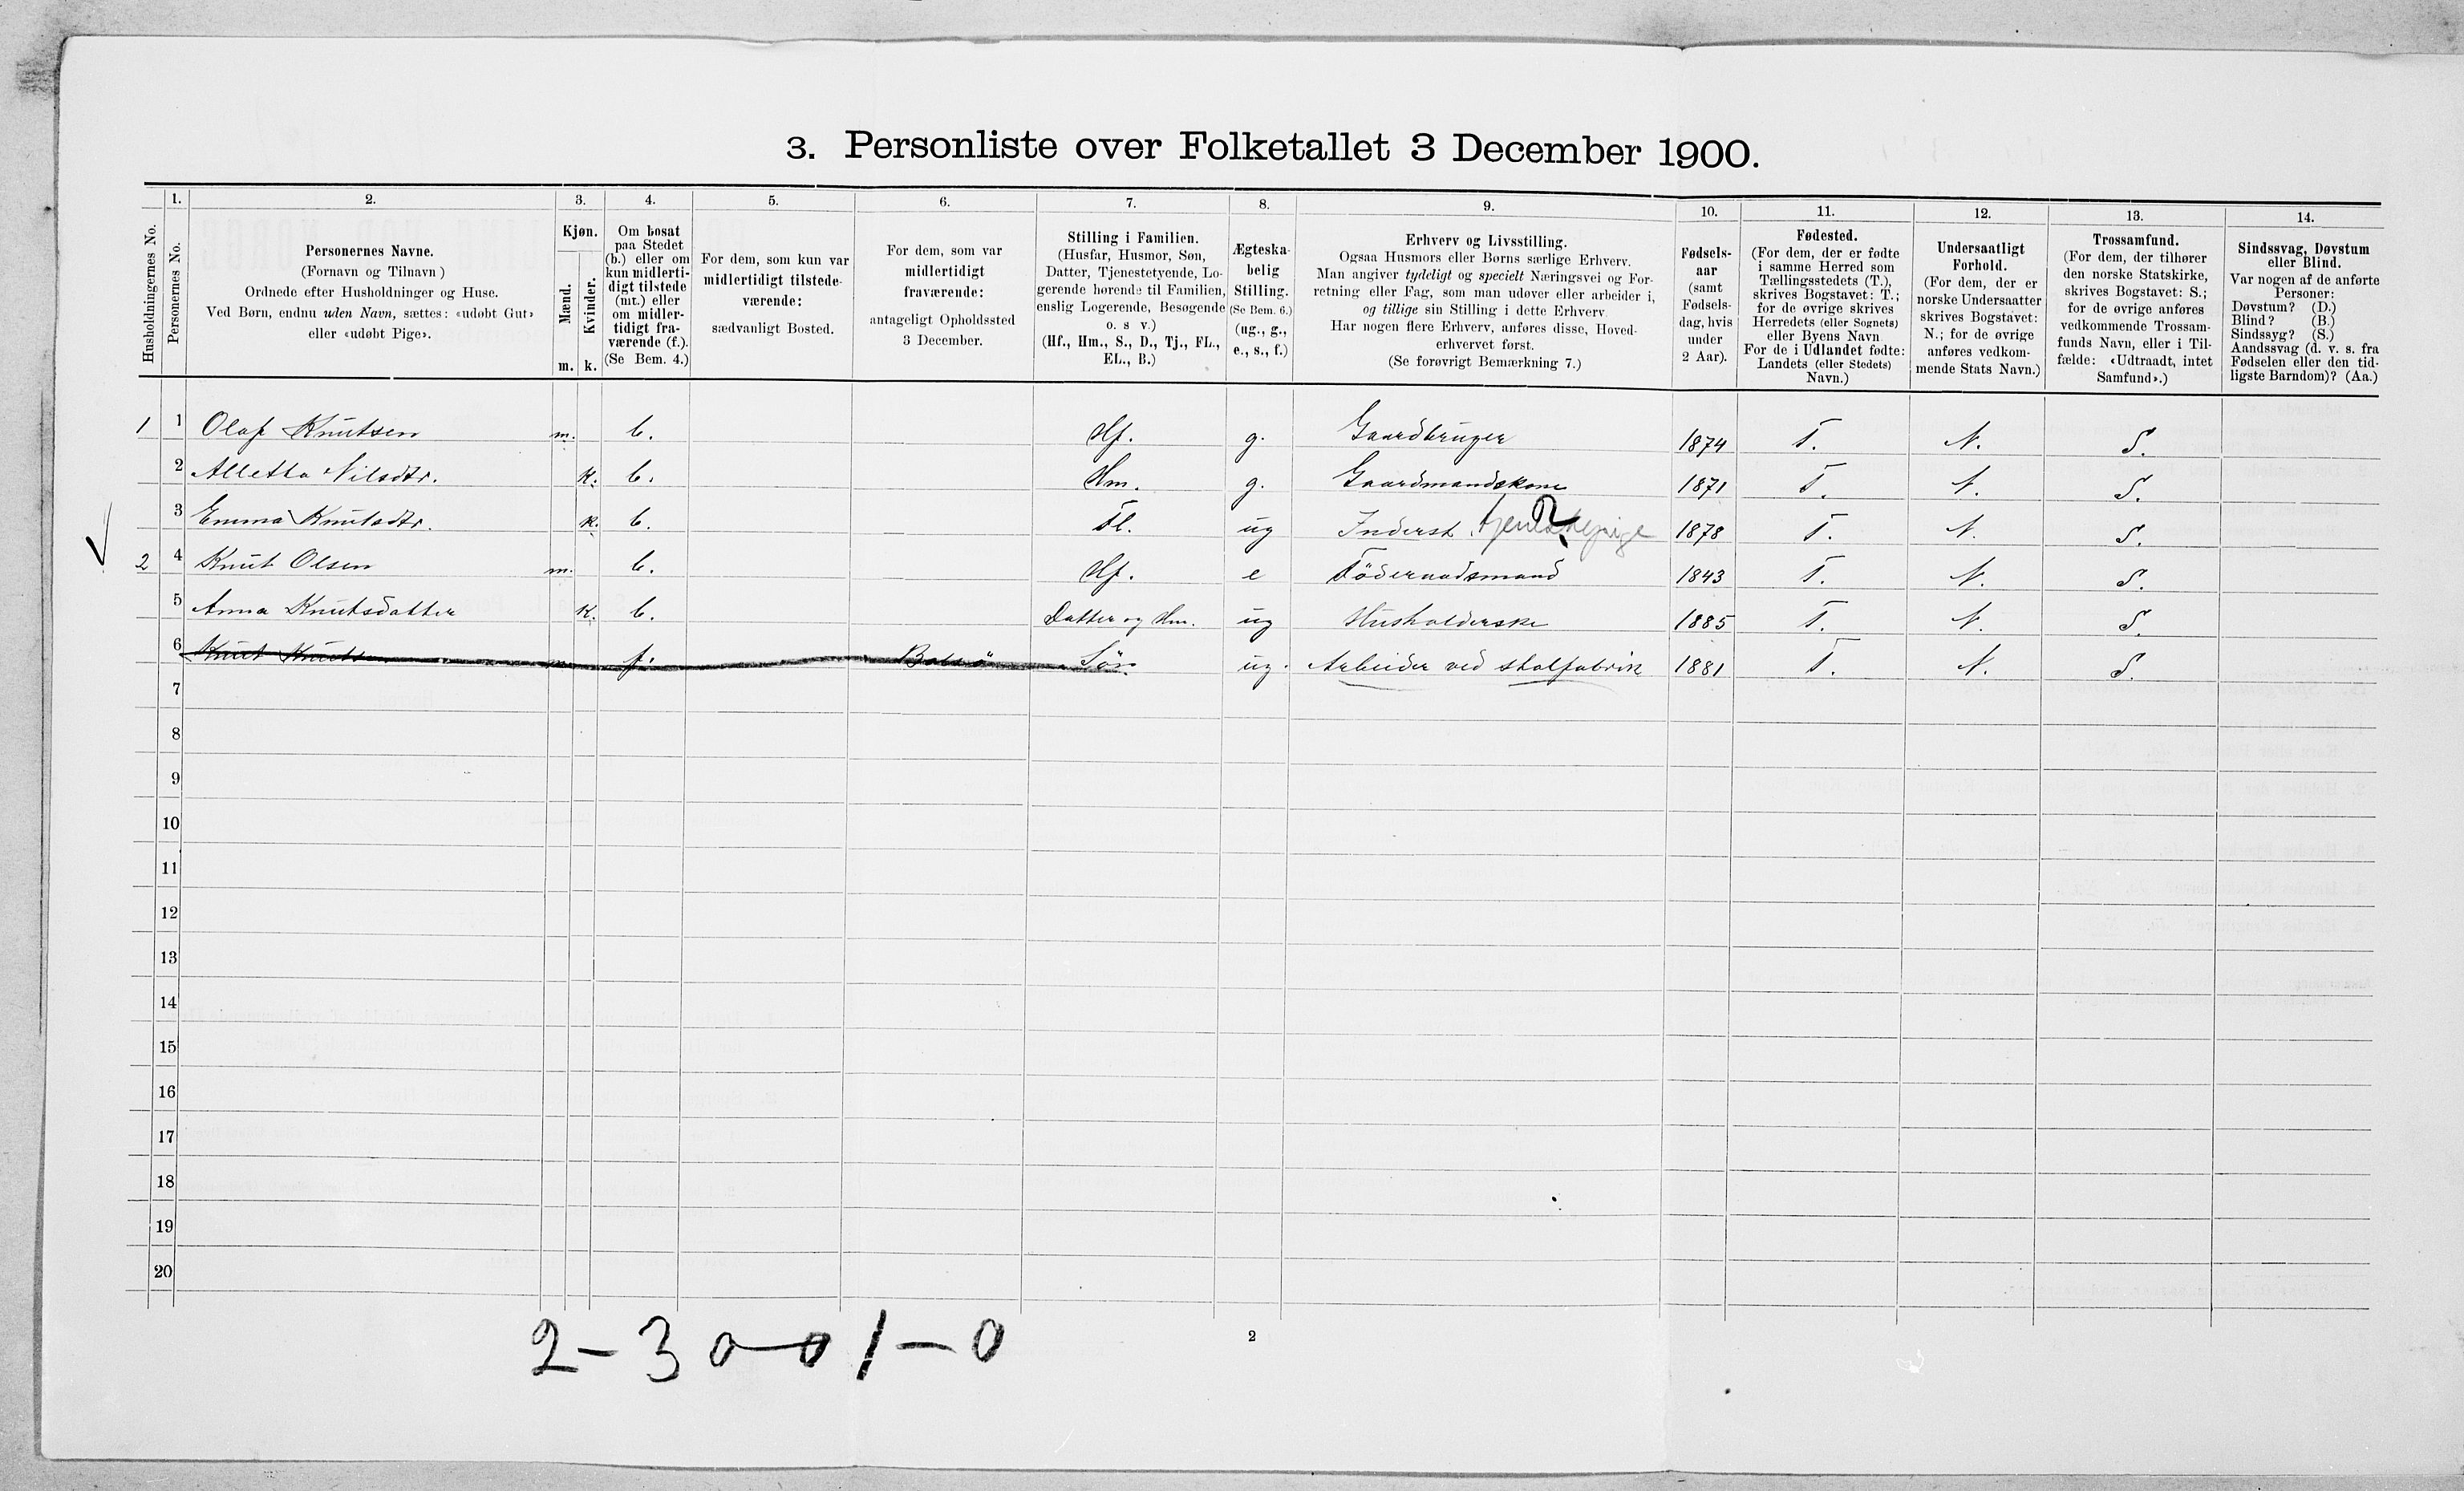 3. Personliste over Folketallet 3 December 1900.
Husholdningernes No.
1.
Personernes No.
2.
Personernes Navne.
(Fornavn og Tilnavn)
Ordnede efter Husholdninger og Huse.
Ved Børn, endnu uden Navn, sættes: «udøbt Gut»
eller «udøbt Pige».
3.
Kjøn.
Mænd.
Kvinder.
m. k.
4.
Om bosat
paa Stedet
(b.) eller om
kun midlerti-
digt tilstede
(mt.) eller
om midler-
tidigt fra-
værende (f.).
(Se Bem. 4.)
5.
For dem, som kun var
midlertidigt tilstede-
værende:
sædvanligt Bosted.
6.
For dem, som var
midlertidigt
fraværende:
antageligt Opholdssted
3 December.
7.
Stilling i Familien.
(Husfar, Husmor, Søn,
Datter, Tjenestetyende, Lo-
gerende hørende til Familien,
enslig Logerende, Besøgende
o. s v.)
(Hf., Hm., S., D., Tj., FL.,
EL., B.)
8.
Ægteska-
belig
Stilling.
(Se Bem. 6.)
(ug., g.,
e., s., f.)
9.
Erhverv og Livsstilling.
Ogsaa Husmors eller Børns særlige Erhverv.
Man angiver tydeligt og specielt Næringsvei og For-
retning eller Fag, som man udøver eller arbeider i,
og tillige sin Stilling i dette Erhverv.
Har nogen flere Erhverv, anføres disse, Hoved-
erhvervet først.
(Se forøvrigt Bemærkning 7.)
10.
Fødsels-
aar
(samt
Fødsels-
dag, hvis
under
2 Aar).
11.
Fødested.
(For dem, der er fødte
i samme Herred som
Tællingsstedets (T.),
skrives Bogstavet: T.;
for de øvrige skrives
Herredets (eller Sognets)
eller Byens Navn
For de i Udlandet fødte:
Landets (eller Stedets)
Navn.)
12.
Undersaatligt
Forhold.
(For dem, der er
norske Undersaatter
skrives Bogstavet:
N.; for de øvrige
anføres vedkom-
mende Stats Navn.)
13.
Trossamfund.
(For dem, der tilhører
den norske Statskirke,
skrives Bogstavet: S.;
for de øvrige anføres
vedkommende Trossam-
funds Navn, eller i Til-
fælde: «Udtraadt, intet
Samfund».)
14.
Sindssvag, Døvstum
eller Blind.
Var nogen af de anførte
Personer:
Døvstum? (D.)
Blind? (B.)
Sindssyg? (S.)
Aandssvag (d. v. s. fra
Fødselen eller den tid-
ligste Barndom)? (Aa.)
1 1 Olaf Knutsen m. b. Hf. g. Gaardbruger 1874 T. N. S.
2 Alletha Nilsdtr. k. b. Hm. g. Gaardmandskone 1871 T. N. S.
3 Emma Knutsdtr. k. b. Fl. ug Inderst. tjenestepige 1878 T. N. S.
2 4 Knut Olsen m. b. Hf. e Föderaadsmand 1843 T. N. S.
5 Anna Knutsdatter k. b. Datter og Hm. ug Husholderske 1885 T. N. S.
6 Knut Knutsen m. f. Bolsö Sön. ug. Arbeider ved stolfabrik 1881 T. N. S.
7
8
9
10
11
12
13
14
15
16
17
18
19
20
2 - 3 0 - 0 1 - 0
2